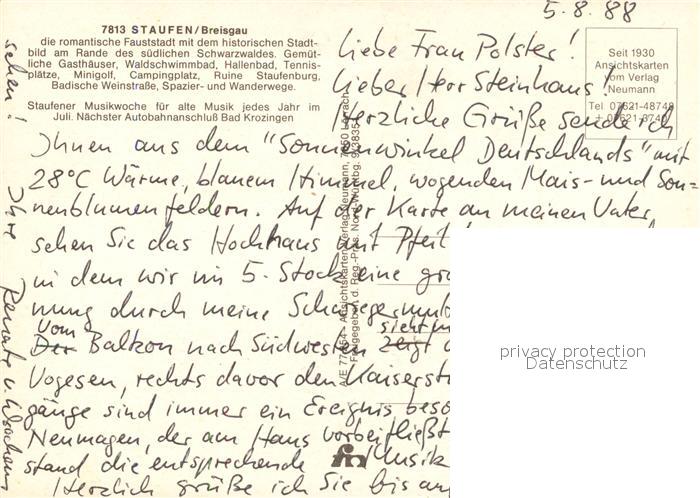 5.8.88
7813 STAUFEN/Breisgau
die romantische Fauststadt mit dem historischen Stadt-
bild am Rande des südlichen Schwarzwaldes. Gemüt-
liche Gasthäuser, Waldschwimmbad, Hallenbad, Tennis-
plätze, Minigolf, Campingplatz, Ruine Staufenburg,
Badische Weinstraße, Spazier- und Wanderwege.
Staufener Musikwoche für alte Musik jedes Jahr im
Juli. Nächster Autobahnanschluß Bad Krozingen
Seit 1930
Ansichtskarten
vom Verlag
Neumann
Tel 07621-48748
Liebe Frau Polster!
Lieber Herr Steinhaus!
Herzliche Grüße sende ich
Ihnen aus dem "Sonnenwinkel Deutschlands" mit
28°C Wärme, blauem Himmel, wogenden Mais- und Son-
nenblumenfeldern. Auf der Karte an meinen Vater
sehen Sie das Hochhaus mit Pfeil
in dem wir im 5. Stock eine
nung durch meine
Vom Balkon nach Südwesten sieht
Vogesen, rechts davor den
gänge sind immer ein Ereignis
Neumagen, der am Haus vorbeifließt
stand die entsprechende Musik
Herzlich grüße ich Sie bis
sehen!
Ihre
Renate u.
Ansichtskartenverlag Neumann, 7850 Lörrach
Freigegeben d. Reg.-Präs.
privacy protection
Datenschutz